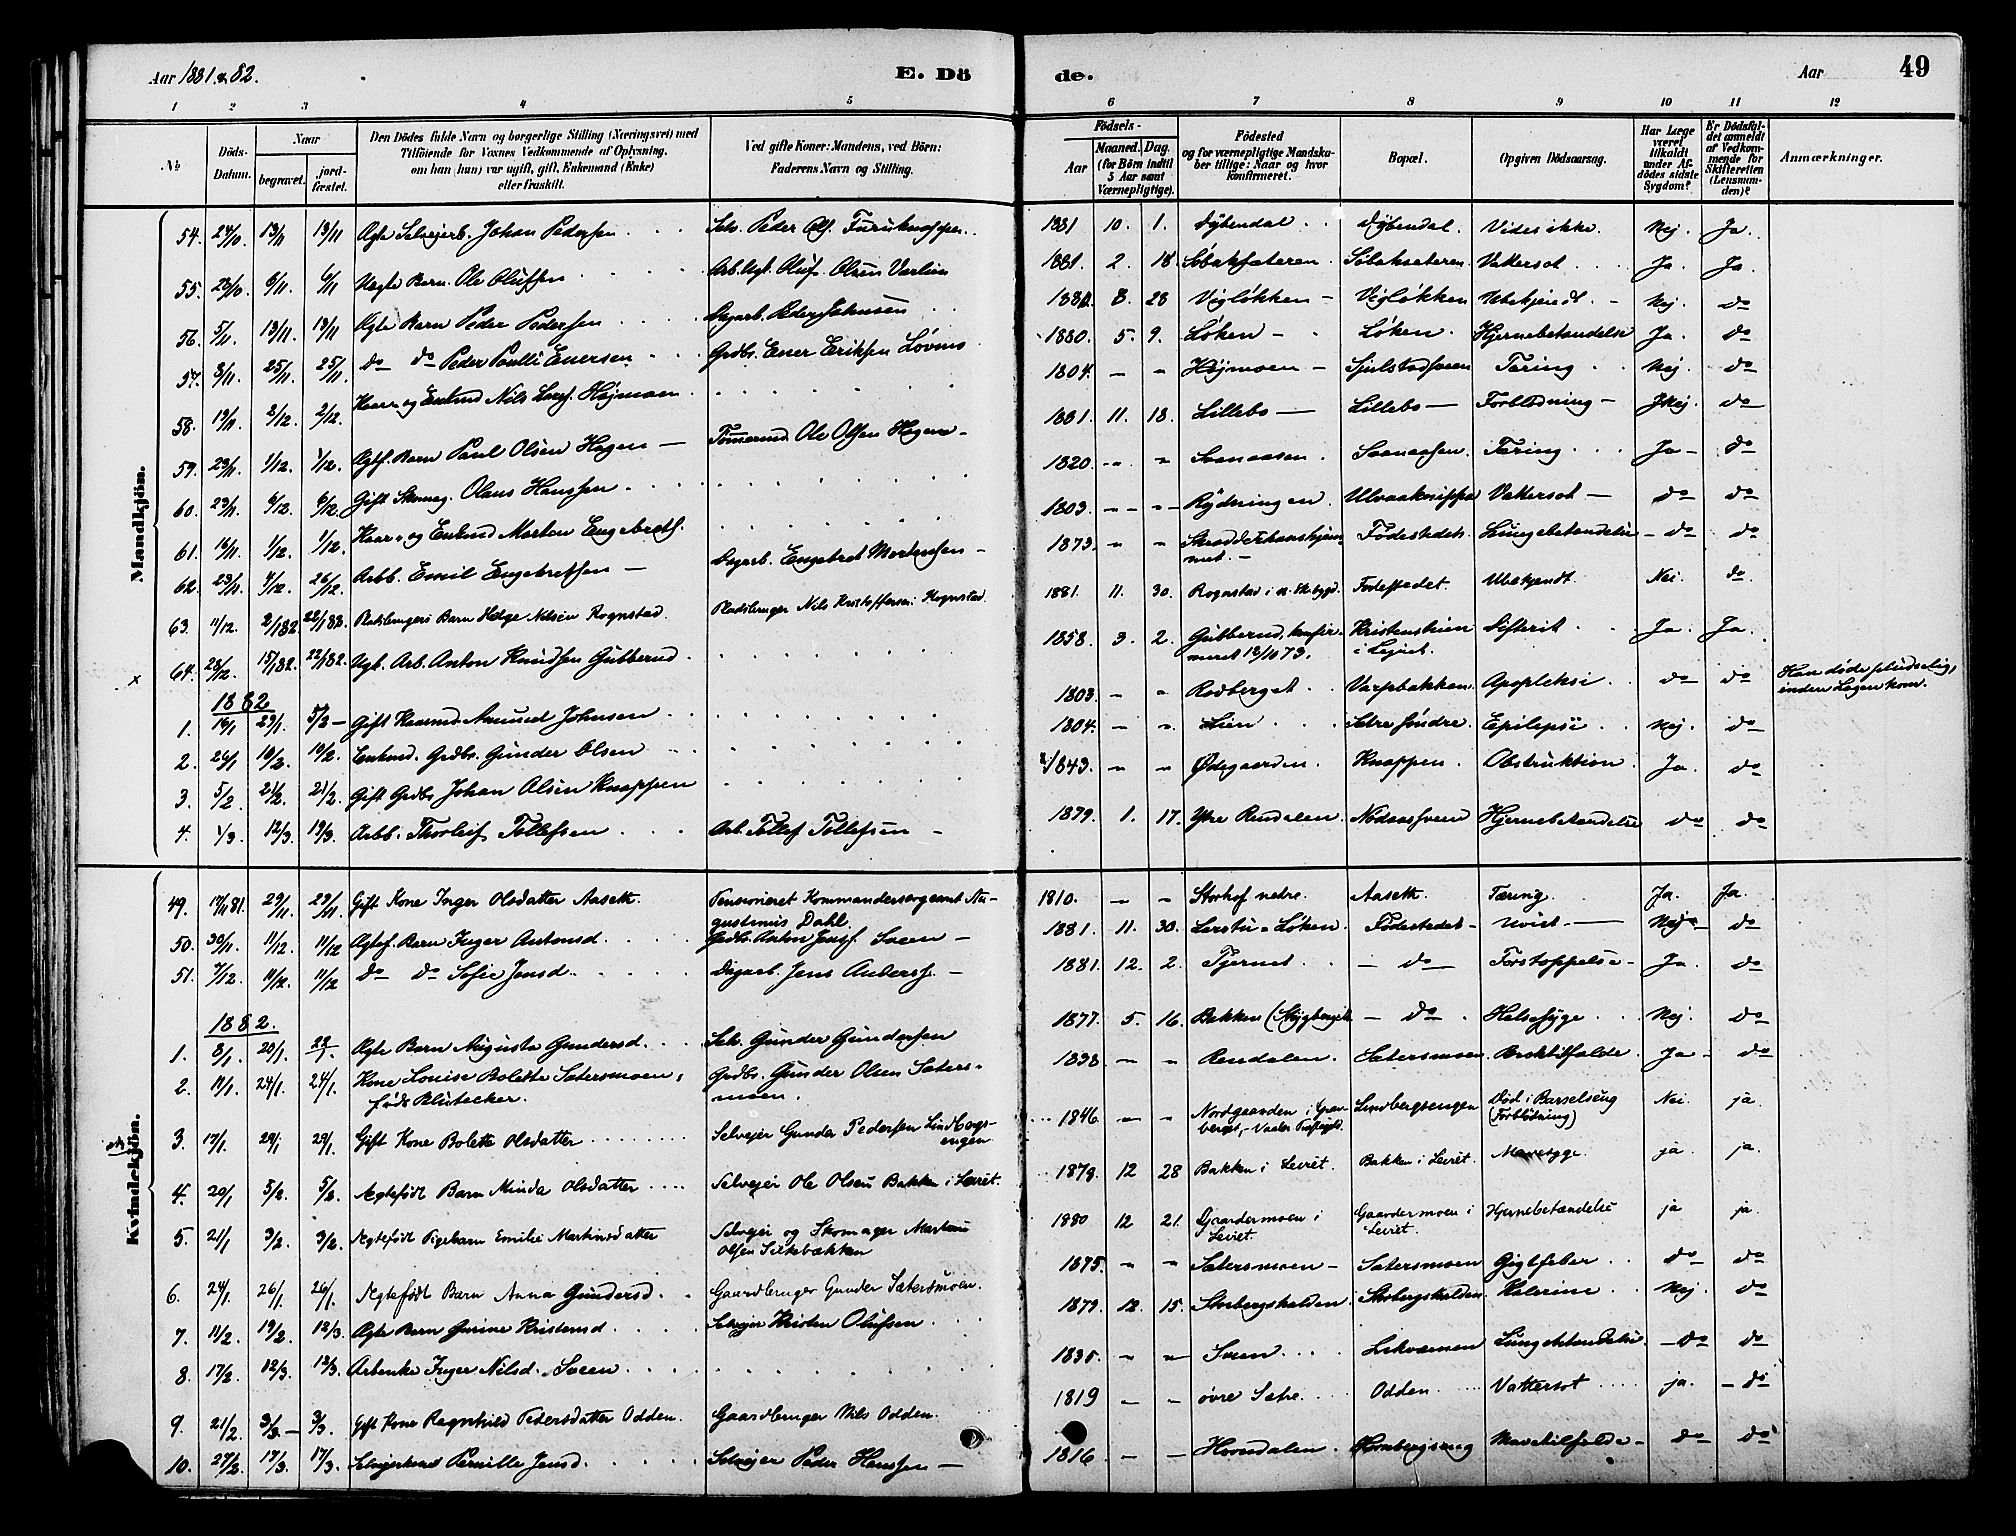 Aar 1881 & 82.
E. Dö
de.
Aar
49
1 2 3 4 5 6 7 8 9 10 11 12
No.
Döds-Datum.
Naar
begravet.
jordfæstet.
Den Dödes fulde Navn og borgerlige Stilling (Næringsvei) med
Tilföiende for Voxnes Vedkommende af Oplysning,
om han (hun) var ugift, gift, Enkemand (Enke)
eller fraskilt.
Ved gifte Koner: Mandens, ved Börn:
Faderens Navn og Stilling.
Födsels-
Aar
Maaned. Dag.
(for Börn indtil
5 Aar samt
Værnepligtige).
Födested
og for værnepligtige Mandskaber tillige: Naar og hvor
konfirmeret.
Bopæl.
Opgiven Dödsaarsag.
Har Læge
været
tilkaldt
under Afdödes sidste
Sygdom?
Er Dödsfaldet anmeldt
af Vedkommende for
Skifteretten
(Lensmanden)?
Anmærkninger.
Mandkjön.
54. 24/10. 13/11 13/11 Ægte Selveierb. Johan Pedersen Selv. Peder Ols. Furuknappen 1881 10. 1. Dybendal Dybendal. Vides ikke. Nej. Ja.
55. 28/10. 6/11. 6/11 Uægte Barn Ole Olufsen Arb. Ugt. Oluf Olsen 1881. 2. 18. Søbaksæteren Søbaksæteren Vattersot Ja. Ja.
56. 5/11. 13/11. 13/11 Ægte Barn Peder Pedersen Dagarb. Peder Johnsen 8. 28 Vigløkken Vigløkken Ubekjendt Nej. do
57. 8/11. 25/11. 25/11. do do Peder Paulli Enersen Grdbr. Ener Eriksen 1880. 5. 9. Løken Løken. Hjernebetændelse Ja. do
58. 19/11 2/12. 2/12. Enkmd Nils Højmoen 1804. Højmoen Tæring Nej. do
59. 29/11. 1/12. 1/12. Ægtef. Barn Paul Olsen Hagen Ole Olsen Hagen 1881. 11. 18. Lillebo Lillebo Forblødning Nej. do
60. 29/11. 6/12. 6/12. Gift Olaus Hanssen 1820. Svenaasen. Svenaasen. Tæring Ja do
61. 16/11. 1/12. 1/12. Enkmd Morten Engebretsen 1803. Rydningen. Ulvaaknippa Vattersot do do
62. 23/11. 4/12. 26/12. Arbb. Emil Engebretsen Dagarb. Engebret Mortensen 1873. Fødestedet. Lungebetændelse do do
63. 11/12. 2/1 82. 22/1 82. Pladsbrugers Barn Helge Nilsen Rognstad Pladsbruger Nils Kristoffersen Rognstad. 1881. 11. 30. Rognstad Fødestedet. Ubekjendt. Nei. do
64. 28/12. 15/1 82. 22/1 82. Ugt. Arb. Anton Knudsen Gubberud 1858. 3. 2. Gubberud, konfirmeret 12/10 73. i Leiret. Difterit Ja. Ja.
1882
1. 16/1 29/1. 5/2 Gift Amund Johnsen 1803. Rødberget. Varpbakken Apopleksi do do Han døde pludselig, inden Lægen kom.
2. 26/1 10/2. 10/2. Enkmd. Grdbr. Gunder Olsen 1804. Lien Sætre søndre. Epilepsi Nej. do
3. 5/2. 21/2. 21/2. Gift Grdbr Johan Olsen Knappen 1843. Ødegaarden. Knappen. Obstruktion. Ja. do
4. 1/3. 12/3. 19/3. Arbb. Thorleif Tollefsen Arb. Tollef Tollefsen 1879. 1. 17. Ytre Rendalen. Nordaasveen Hjernebetændelse do do
Kvindekjön.
49. 17/11 81. 29/11. 29/11. Gift Kone Inger Olsdatter Aaseth. Pensioneret Kommandersergeant Augustinus Dahl. 1810. Storhof nedre. Aaseth. Tæring. Ja. Ja.
50. 30/11. 11/12. 11/12 Ægtef. Barn Inger Antonsd. Grdbr. Anton Sveen 1881. 11. 30. Løken. Fødestedet Uvist Nej do
51. 7/12. 11/12. 11/12 do do Sofie Jensd. Dagarb. Jens Anders. 1881. 12. 2. Tjernet. do Forstoppelse Ja. do
1882.
1. 8/1. 20/1. Ægte Barn Augusta Gundersd. Selv. Gunder Gundersen 1877. 5. 16. Bakken do Halssyge Nej. do
2. 11/1. 24/1. 24/1. Kone Louise Bolette Sætersmoen, født Klütecker. Grdbr. Gunder Olsen Sætersmoen. 1838 Rendalen. Sætersmoen Brysttilfælde. Ja do
3. 17/1. 29/1 29/1. Gift Kone Bolette Olsdatter Selveier Gunder Pedersen Lindbergsengen 1846. Nordgaarden i Gravberget, Vaaler Præstegjd. Lindbergsengen Død i Barselseng (Forblødning) Nei ja
4. 20/1 5/2. 5/2. Ægtefødt Barn Minda Olsdatter Selveier Ole Olsen Bakken i Leiret. 1878 12 28 Bakken i Leiret. Bakken i Leiret. Mavesyge. ja ja.
5. 21/1 3/2. 3/2. Ægtefødt Pigebarn Emilie Martinsdatter Selveier og Skomager Martin Olsen Silkebækken 1880 12 21. Gaardermoen i Leiret. Gaardermoen i Leiret. Hjernebetændelse ja ja.
6. 24/1. 26/1. 26/1. Ægtefødt Barn Anna Gundersd. Gaardbruger Gunder Sætersmoen. 1875. Sætersmoen Sætersmoen Gigtfeber do do
7. 11/2. 19/2. 12/3. Ægte Barn Gurine Kristensd Selveier Kristen Olufsen 1879. 12. 15. Storbergshalden. Storbergshalden. Kolerine Nej do
8. 17/2. 12/3. 12/3. Arbenke Inger Nilsd. Sveen Sveen Lungebetændelse. do do
9. 21/2. 3/3 3/3. Gift Kone Ragnhild Pedersdatter Odden. Gaardbruger Nils Odden. 1819 øvre Sætre Odden Vattersot ja. do
10. 27/2. 17/3. 17/3. Pernille Jensd. Selveier Peder Hanssen 1816 Hovdalen. Mavetilfælde do do